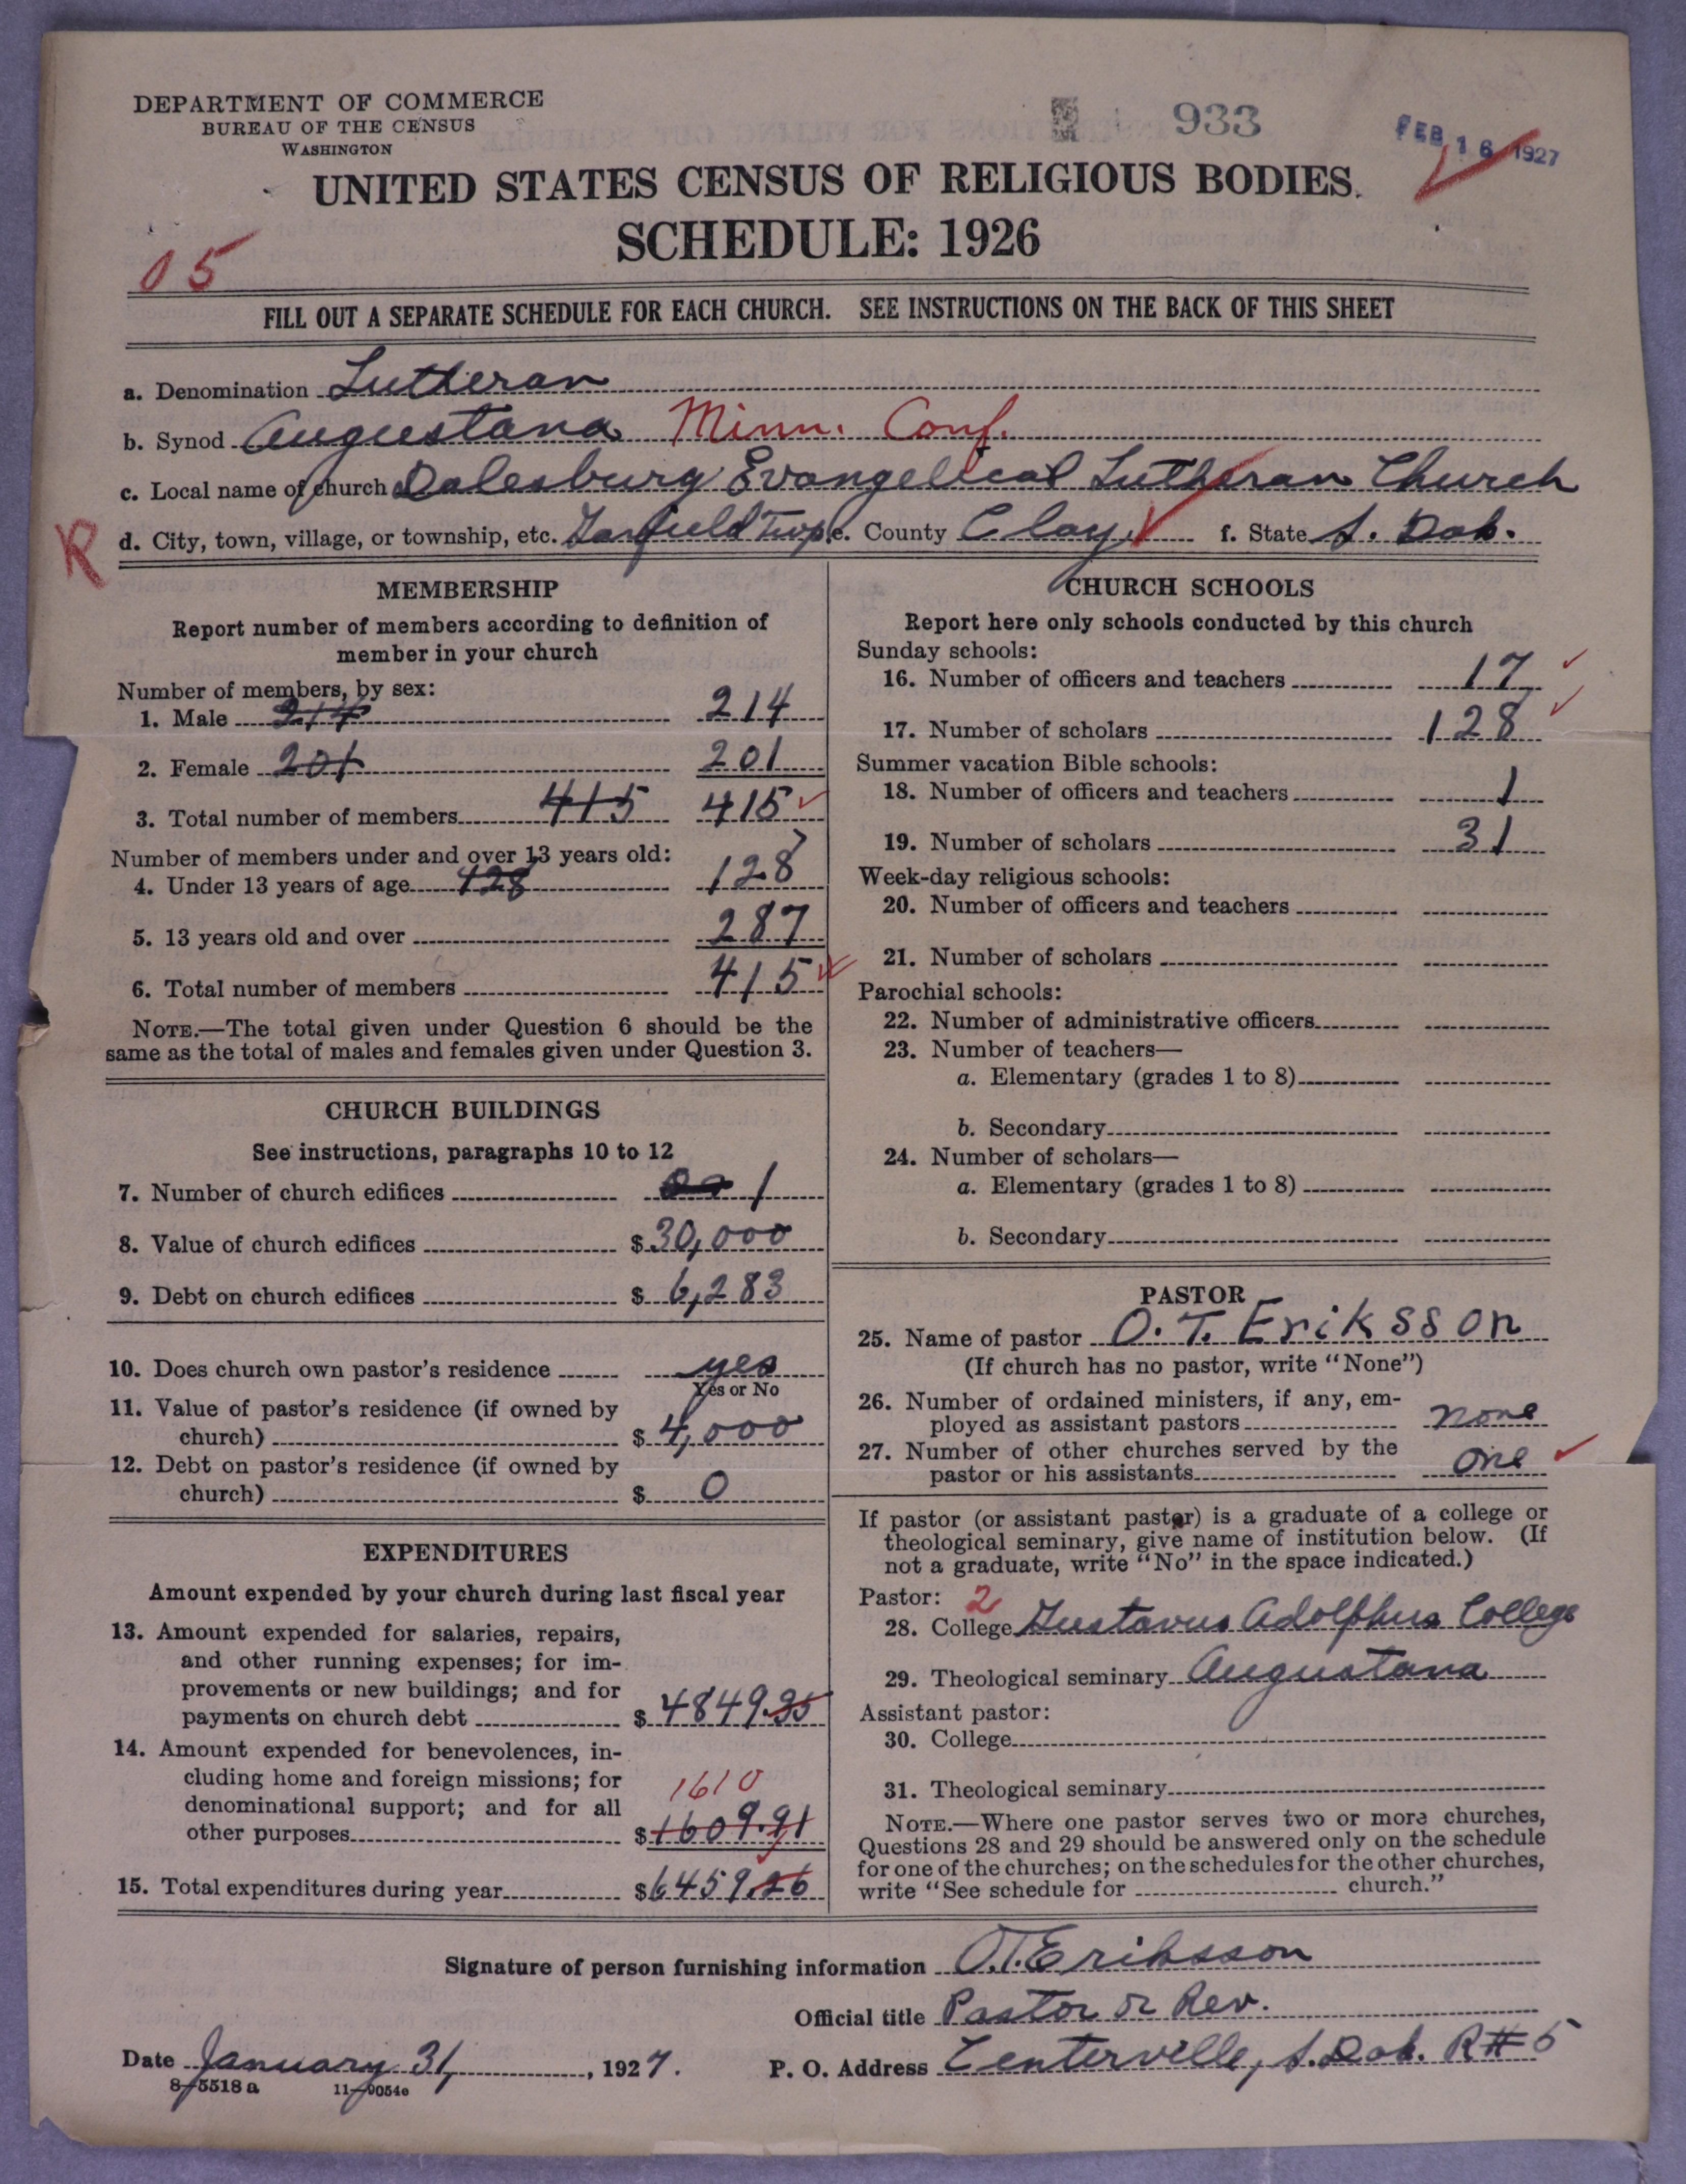 DEPARTMENT OF COMMERCE
BUREAU OF THE CENSUS
WASHINGTON
933
FEB 16 1927
UNITED STATES CENSUS OF RELIGIOUS BODIES.
SCHEDULE: 1926
05
FILL OUT A SEPARATE SCHEDULE FOR EACH CHURCH. SEE INSTRUCTIONS ON THE BACK OF THIS SHEET
a. Denomination Lutheran
b. Synod Augustana Minn. Conf.
c. Local name of church Dalesburg Evangelical Lutheran Church
R d. City, town, village, or township, etc. Garfield Twp. e. County Clay f. State S. Dak.
MEMBERSHIP
Report number of members according to definition of
member in your church
Number of members, by sex:
1. Male 214 214
2. Female 201 201
3. Total number of members 415 415
Number of members under and over 13 years old:
4. Under 13 years of age 128 128
5. 13 years old and over 287
6. Total number of members 415
NOTE.—The total given under Question 6 should be the
same as the total of males and females given under Question 3.
CHURCH BUILDINGS
See instructions, paragraphs 10 to 12
7. Number of church edifices 1
8. Value of church edifices $30,000
9. Debt on church edifices $ 6,283
10. Does church own pastor's residence yes
Yes or No
11. Value of pastor's residence (if owned by
church) $ 4,000
12. Debt on pastor's residence (if owned by
church) $ 0
EXPENDITURES
Amount expended by your church during last fiscal year
13. Amount expended for salaries, repairs,
and other running expenses; for im-
provements or new buildings; and for
payments on church debt $ 4849.35
14. Amount expended for benevolences, in-
cluding home and foreign missions; for
denominational support; and for all
1610
other purposes $1609.91
15. Total expenditures during year $6459.26
CHURCH SCHOOLS
Report here only schools conducted by this church
Sunday schools:
16. Number of officers and teachers 17
17. Number of scholars 128
Summer vacation Bible schools:
18. Number of officers and teachers 1
19. Number of scholars 31
Week-day religious schools:
20. Number of officers and teachers
21. Number of scholars
Parochial schools:
22. Number of administrative officers
23. Number of teachers—
a. Elementary (grades 1 to 8)
b. Secondary
24. Number of scholars—
a. Elementary (grades 1 to 8)
b. Secondary
PASTOR
25. Name of pastor O. T. Eriksson
(If church has no pastor, write "None")
26. Number of ordained ministers, if any, em-
ployed as assistant pastors none
27. Number of other churches served by the
pastor or his assistants one
If pastor (or assistant pastor) is a graduate of a college or
theological seminary, give name of institution below. (If
not a graduate, write "No" in the space indicated.)
Pastor: 2
28. College Gustavus Adolphus College
29. Theological seminary Augustana
Assistant pastor:
30. College
31. Theological seminary
NOTE.—Where one pastor serves two or more churches,
Questions 28 and 29 should be answered only on the schedule
for one of the churches; on the schedules for the other churches,
write "See schedule for church."
Signature of person furnishing information O.T. Eriksson
Official title Pastor or Rev.
Date January 31, 1927. P. O. Address Centerville, S. Dak. R#5
8-5518 a 11-9054e